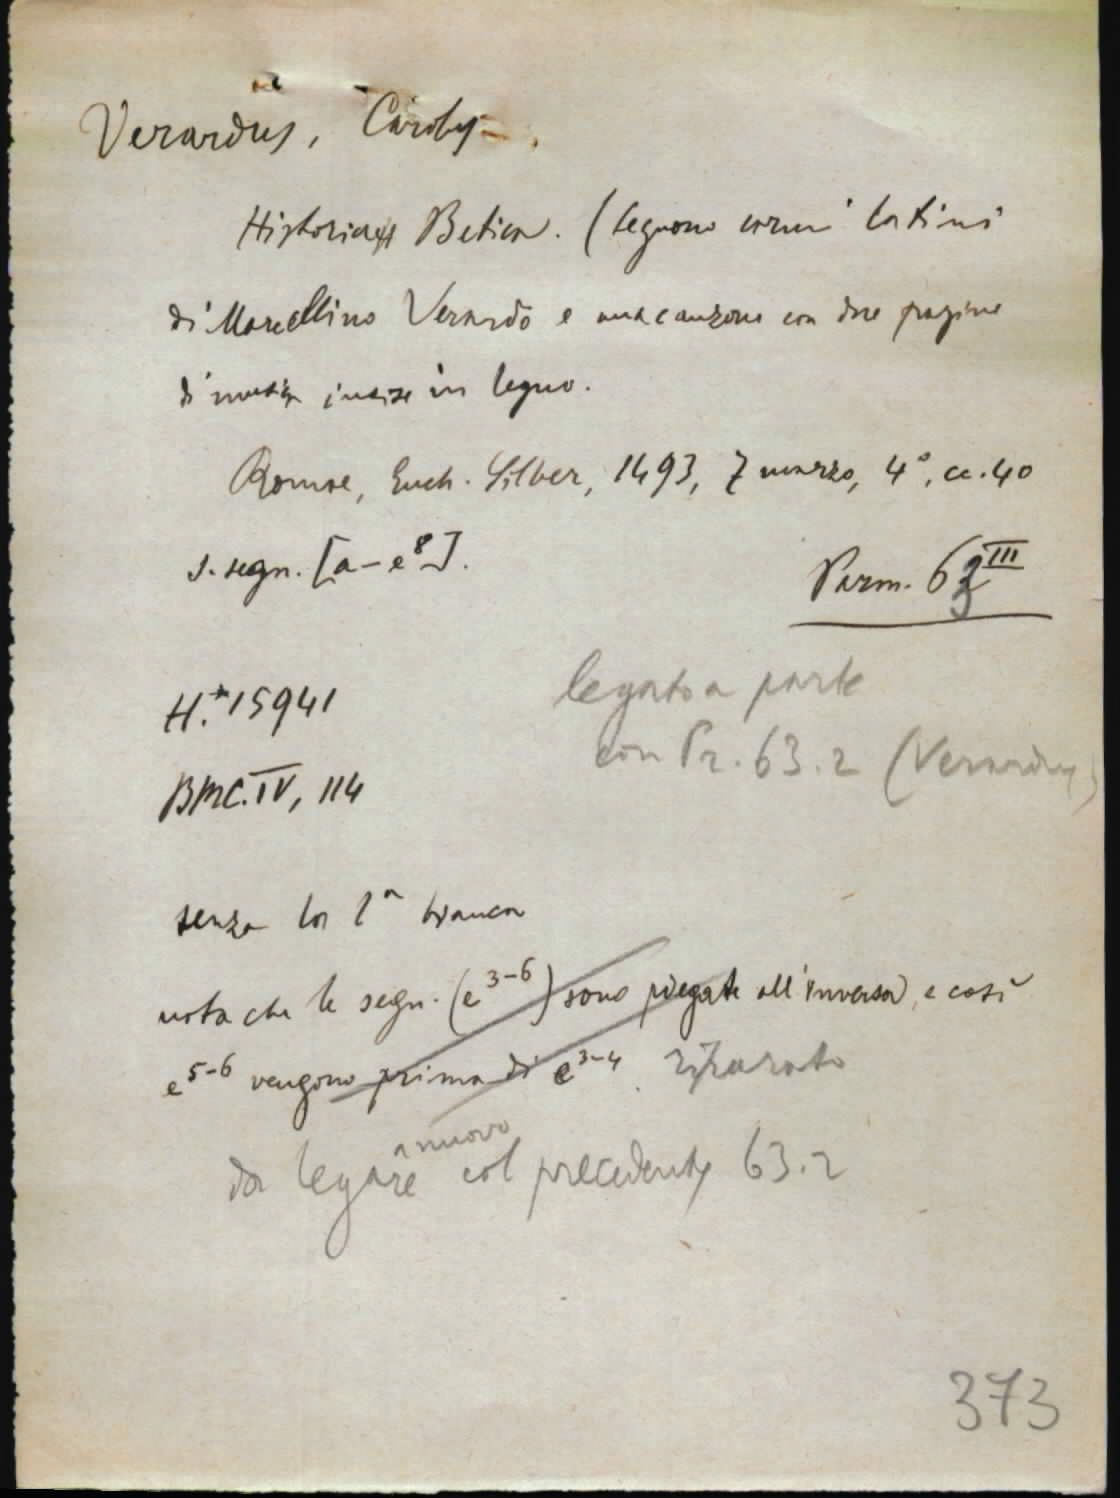 Verardus, Carolus
Historia Betica. (seguono carmi latini
di Marcellino Verardo e una canzone con due pagine
di musica incise in legno.
Romae, Euch. Silber, 1493, 7 marzo, 4°, cc. 40
s. segn. [a-e⁸].
Parm. 63 III
legato a parte
con Pr. 63.2 (Verardus)
H.* 15941
BMC. IV, 114
senza la 1ª bianca
nota che le segn. (e³⁻⁶) sono piegate all'inversa, e così
e⁵⁻⁶ vengono prima di e³⁻⁴. riparato
da legare a nuovo col precedente 63.2
373